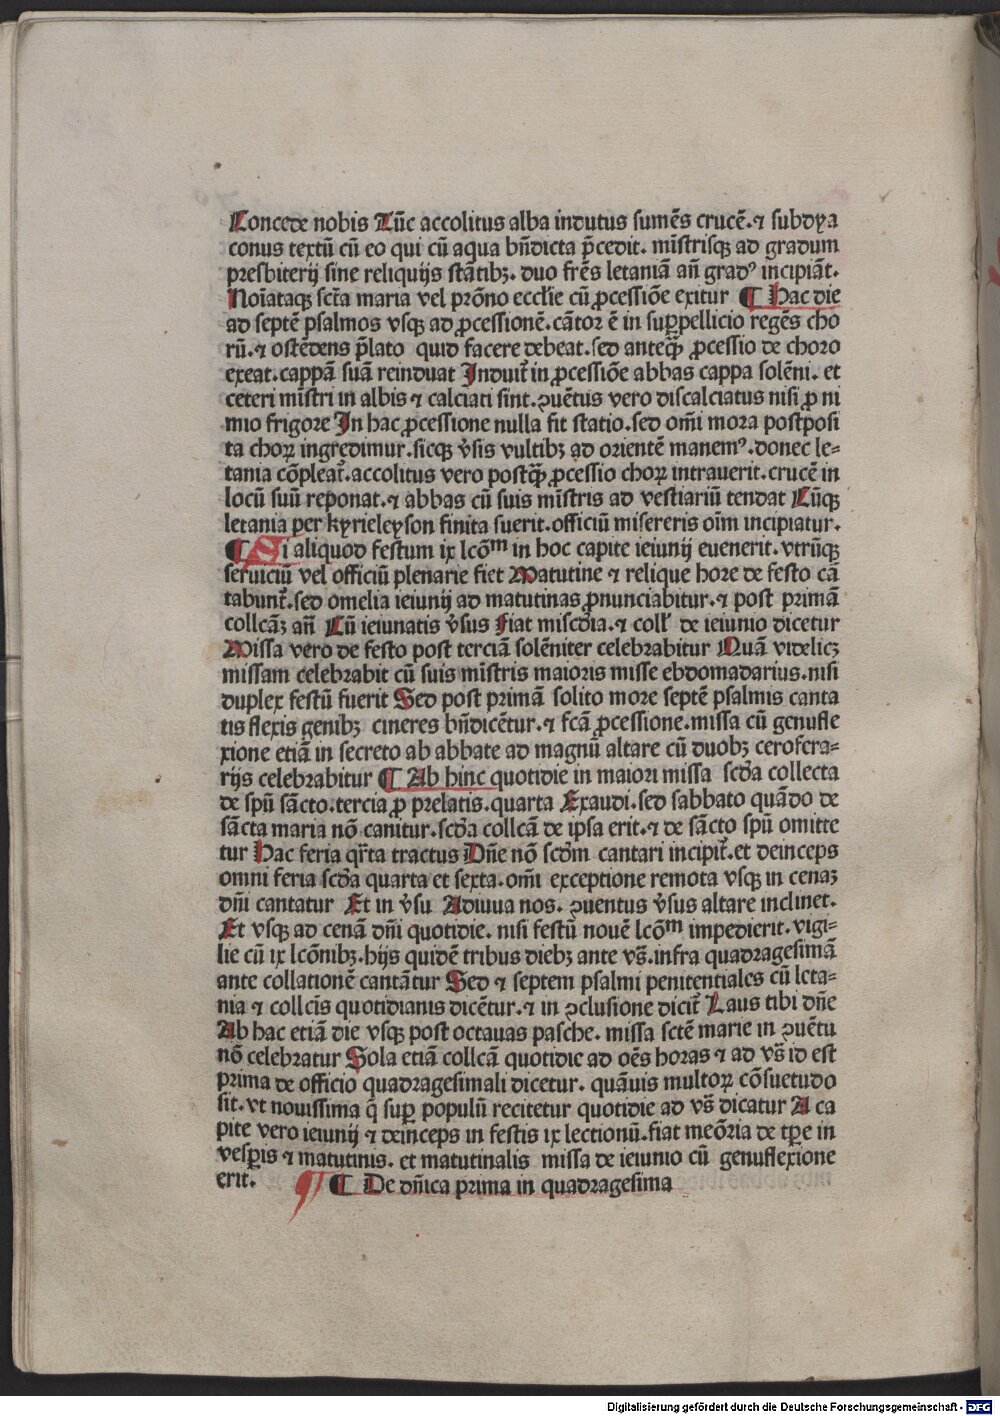 Concede nobis Tūc accolitus alba indutus sumēs crucē.⁊ subdya
conus textū cū eo qui cū aqua bn̄dicta p̄cedit. mīstrisqꝫ ad gradum
presbiterij sine reliquijs stātibꝫ. duo fr̄es letaniā an̄ gradꝰ incipiāt.
Noīataqꝫ sct̄a maria vel pro᷒no eccl̄ie cū ꝓcessiōe exitur ¶ Hac die
ad septē psalmos vsqꝫ ad ꝓcessionē. cātor ē in suꝑpellicio regēs cho
rū.⁊ ostēdens p̄lato quid facere debeat. sed anteqꝫ̄ ꝓcessio de choro
exeat. cappā suā reinduat Induit᷑ in ꝓcessiōe abbas cappa solēni. et
ceteri mīstri in albis ⁊ calciati sint. ꝯuētus vero discalciatus nisi ꝓ ni
mio frigore In hac ꝓcessione nulla fit statio. sed om̄i mora postposi
ta choꝝ ingredimur. sicqꝫ v̄sis vultibꝫ ad orientē manemꝰ. donec le⸗
tania cōpleat᷑. accolitus vero postqꝫ̄ ꝓcessio choꝝ intrauerit. crucē in
locū suū reponat.⁊ abbas cū suis mīstris ad vestiariū tendat Cūqꝫ
letania per kyrieleyson finita fuerit. officiū misereris oīm incipiatur.
¶ Si aliquod festum ix lcōm in hoc capite ieiunij euenerit. vtrūqꝫ
seruiciū vel officiū plenarie fiet Matutine ⁊ relique hore de festo cā
tabunt᷑. sed omelia ieiunij ad matutinas ꝓnunciabitur.⁊ post primā
collcāꝫ an̄ Cū ieiunatis v̄sus Fiat miscd̄ia.⁊ coll̄ de ieiunio dicetur
Missa vero de festo post terciā solēniter celebrabitur Quā videlicꝫ
missam celebrabit cū suis mīstris maioris misse ebdomadarius. nisi
duplex festū fuerit Sed post primā solito more septē psalmis canta
tis flexis genibꝫ cineres bn̄dicētur.⁊ fcā ꝓcessione. missa cū genufle
xione etiā in secreto ab abbate ad magnū altare cū duobꝫ cerofera⸗
rijs celebrabitur ¶ Ab hinc quotidie in maiori missa scd̄a collecta
de spū sācto. tercia ꝓ prelatis. quarta Exaudi. sed sabbato quādo de
sācta maria nō canitur. scd̄a collcā de ipsa erit.⁊ de sācto spū omitte
tur Hac feria qr̄ta tractus Dn̄e nō scd̄m cantari incipit᷑. et deinceps
omni feria scd̄a quarta et sexta. om̄i exceptione remota vsqꝫ in cenaꝫ
dn̄i cantatur Et in v̄su Adiuua nos. ꝯuentus v̄sus altare inclinet.
Et vsqꝫ ad cenā dn̄i quotidie. nisi festū nouē lcōm impedierit. vigi⸗
lie cū ix lcōnibꝫ. hijs quidē tribus diebꝫ ante vs̄. infra quadragesimā
ante collationē cantātur Sed ⁊ septem psalmi penitentiales cū leta⸗
nia ⁊ collc̄is quotidianis dicētur.⁊ in ꝯclusione dicit᷑ Laus tibi dn̄e
Ab hac etiā die vsqꝫ post octauas pasche. missa sctē marie in ꝯuētu
nō celebratur Sola etiā collcā quotidie ad oēs horas ⁊ ad vs̄ id est
prima de officio quadragesimali dicetur. quāuis multoꝝ cōsuetudo
sit. vt nouissima q̄ suꝑ populū recitetur quotidie ad vs̄ dicatur A ca
pite vero ieiunij ⁊ deinceps in festis ix lectionū. fiat meōria de tꝑe in
vesꝑis ⁊ matutinis. et matutinalis missa de ieiunio cū genuflexione
erit. ¶ De dn̄ica prima in quadragesima
Digitalisierung gefördert durch die Deutsche Forschungsgemeinschaft - DFG